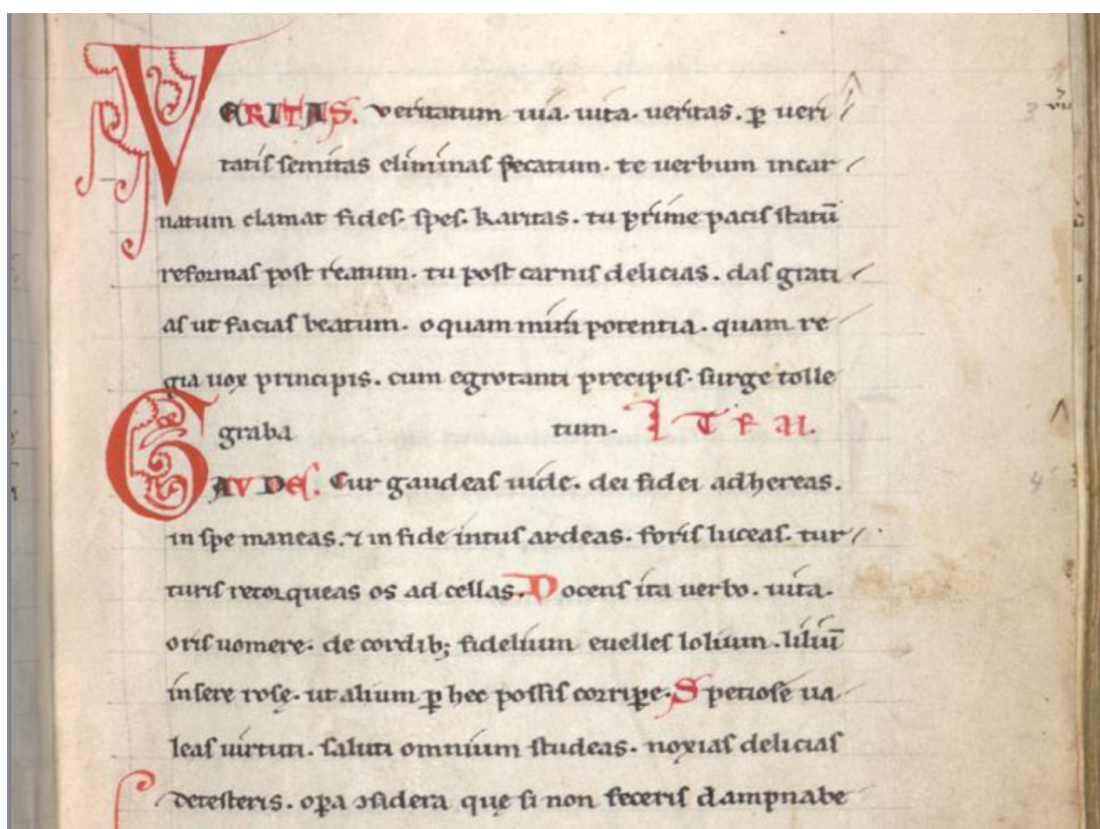 VERITAS. veritatum uia. uita. ueritas. ꝑ ueri
tatiſ ſemitas eliminaſ peccatum. te uerbum incar
natum clamat fideſ. ſpeſ. karitas. tu prime paciſ ſtatū
reformaſ poſt reatum. tu poſt carniſ delicias. daſ grati
aſ ut faciaſ beatum. o quam mira potentia. quam re
gia uox principis. cum egrotanti precipiſ. ſurge tolle
graba tum. ITEM.
GAVDES. Cur gaudeaſ uide. dei fidei adhereas.
in ſpe maneas. ⁊ in fide intuſ ardeas. foriſ luceaſ. tur
turiſ retorqueas os ad cellaſ. Docenſ ita uerbo. uita.
oriſ uomere. de cordib; fidelium euelleſ lolium. liliū
inſere roſę. ut alium ꝑ hec poſſiſ corriꝑe. Specioſe ua
leaſ uirtuti. ſaluti omnium ſtudeas. noxiaſ deliciaſ
deteſteris. oꝑa ↄſidera quę ſi non feceriſ dampnabe
3
4